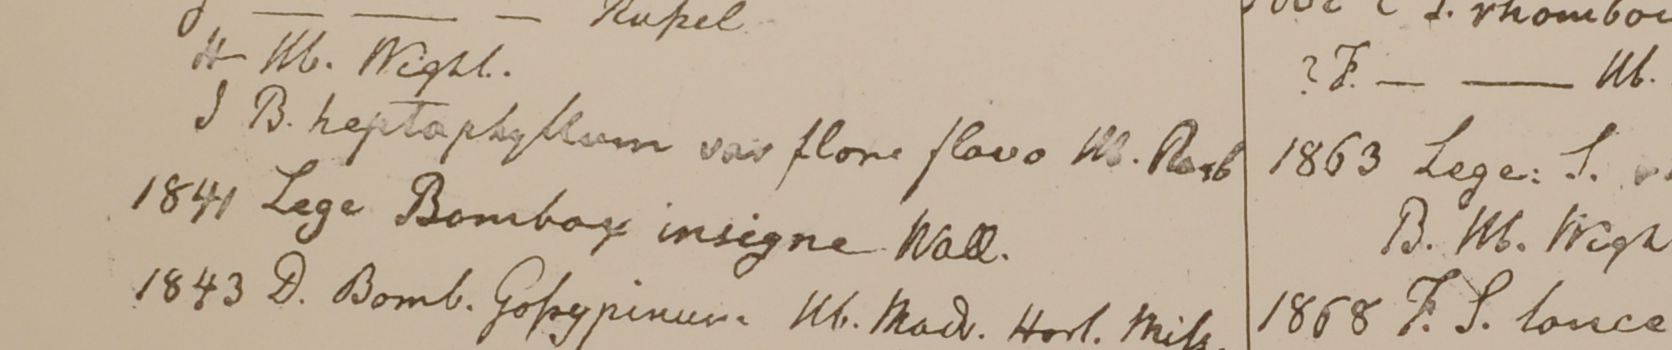 Russel
H Hb. Wight.
I B. heptaphyllum var flore flavo Hb. Roxb
1841 Lege Bombax insigne Wall.
1843 D. Bomb. Gossypinum Hb. Madr. Hort. Miss.
S. rhomboi
? F. — — Hb.
1863 Lege: S.
B. Hb. Wigh
1868 F. S. lance